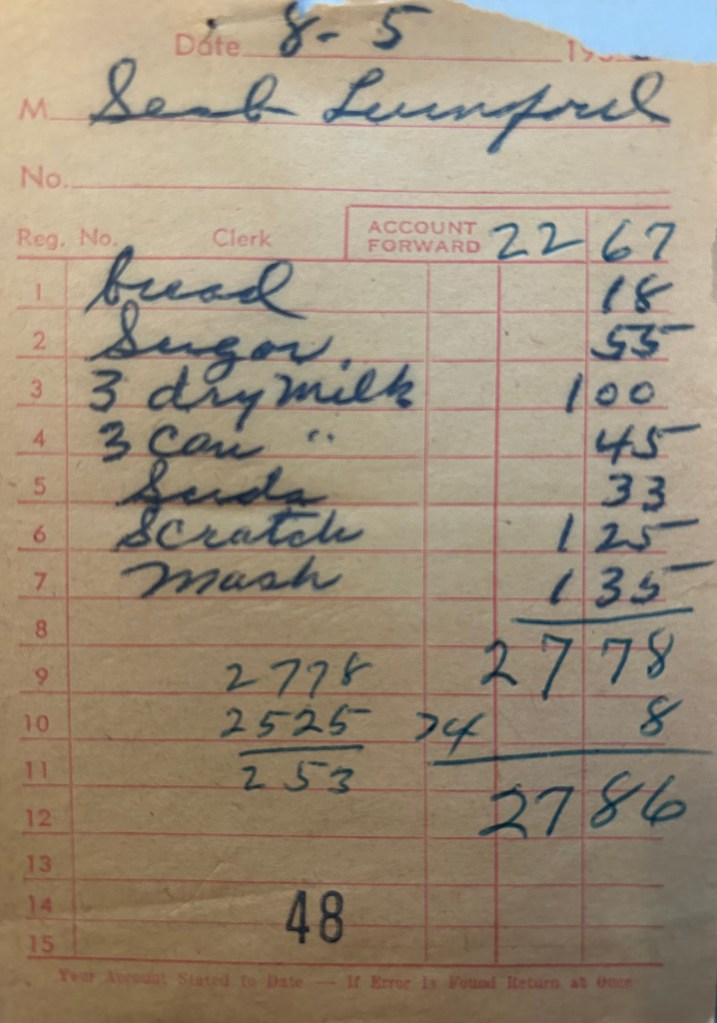 Date 8-5 19
M Seab Lunsford
No.
Reg. No. Clerk ACCOUNT FORWARD 22 67
1 bread 18
2 Sugar 55
3 3 dry milk 1 00
4 3 Can " 45
5 Suds 33
6 Scratch 1 25
7 Mash 1 35
8
9 2778 27 78
10 2525 74 8
11 253
12 27 86
13
14 48
15
Your Account Stated to Date — If Error Is Found Return at Once